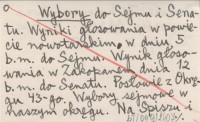 Wybory do Sejmu i Sena-
tu. Wyniki głosowania w powie-
cie nowotarskim w dniu 5
b.m. do Sejmu. Wynik głoso-
wania w Zakopanem dnia 12
b.m. do Senatu. Posłowie z Okrę-
gu 43-go. Wybory sejmowe w
naszym okręgu. Na Spiszu i